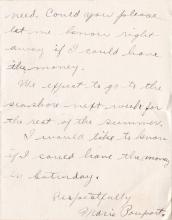 need. Could you please
let me know right
away if I could have
the money.
We expect to go to the
seashore next week for
the rest of the summer.
I would like to know
if I could have the money
by Saturday.
Respectfully
Marie